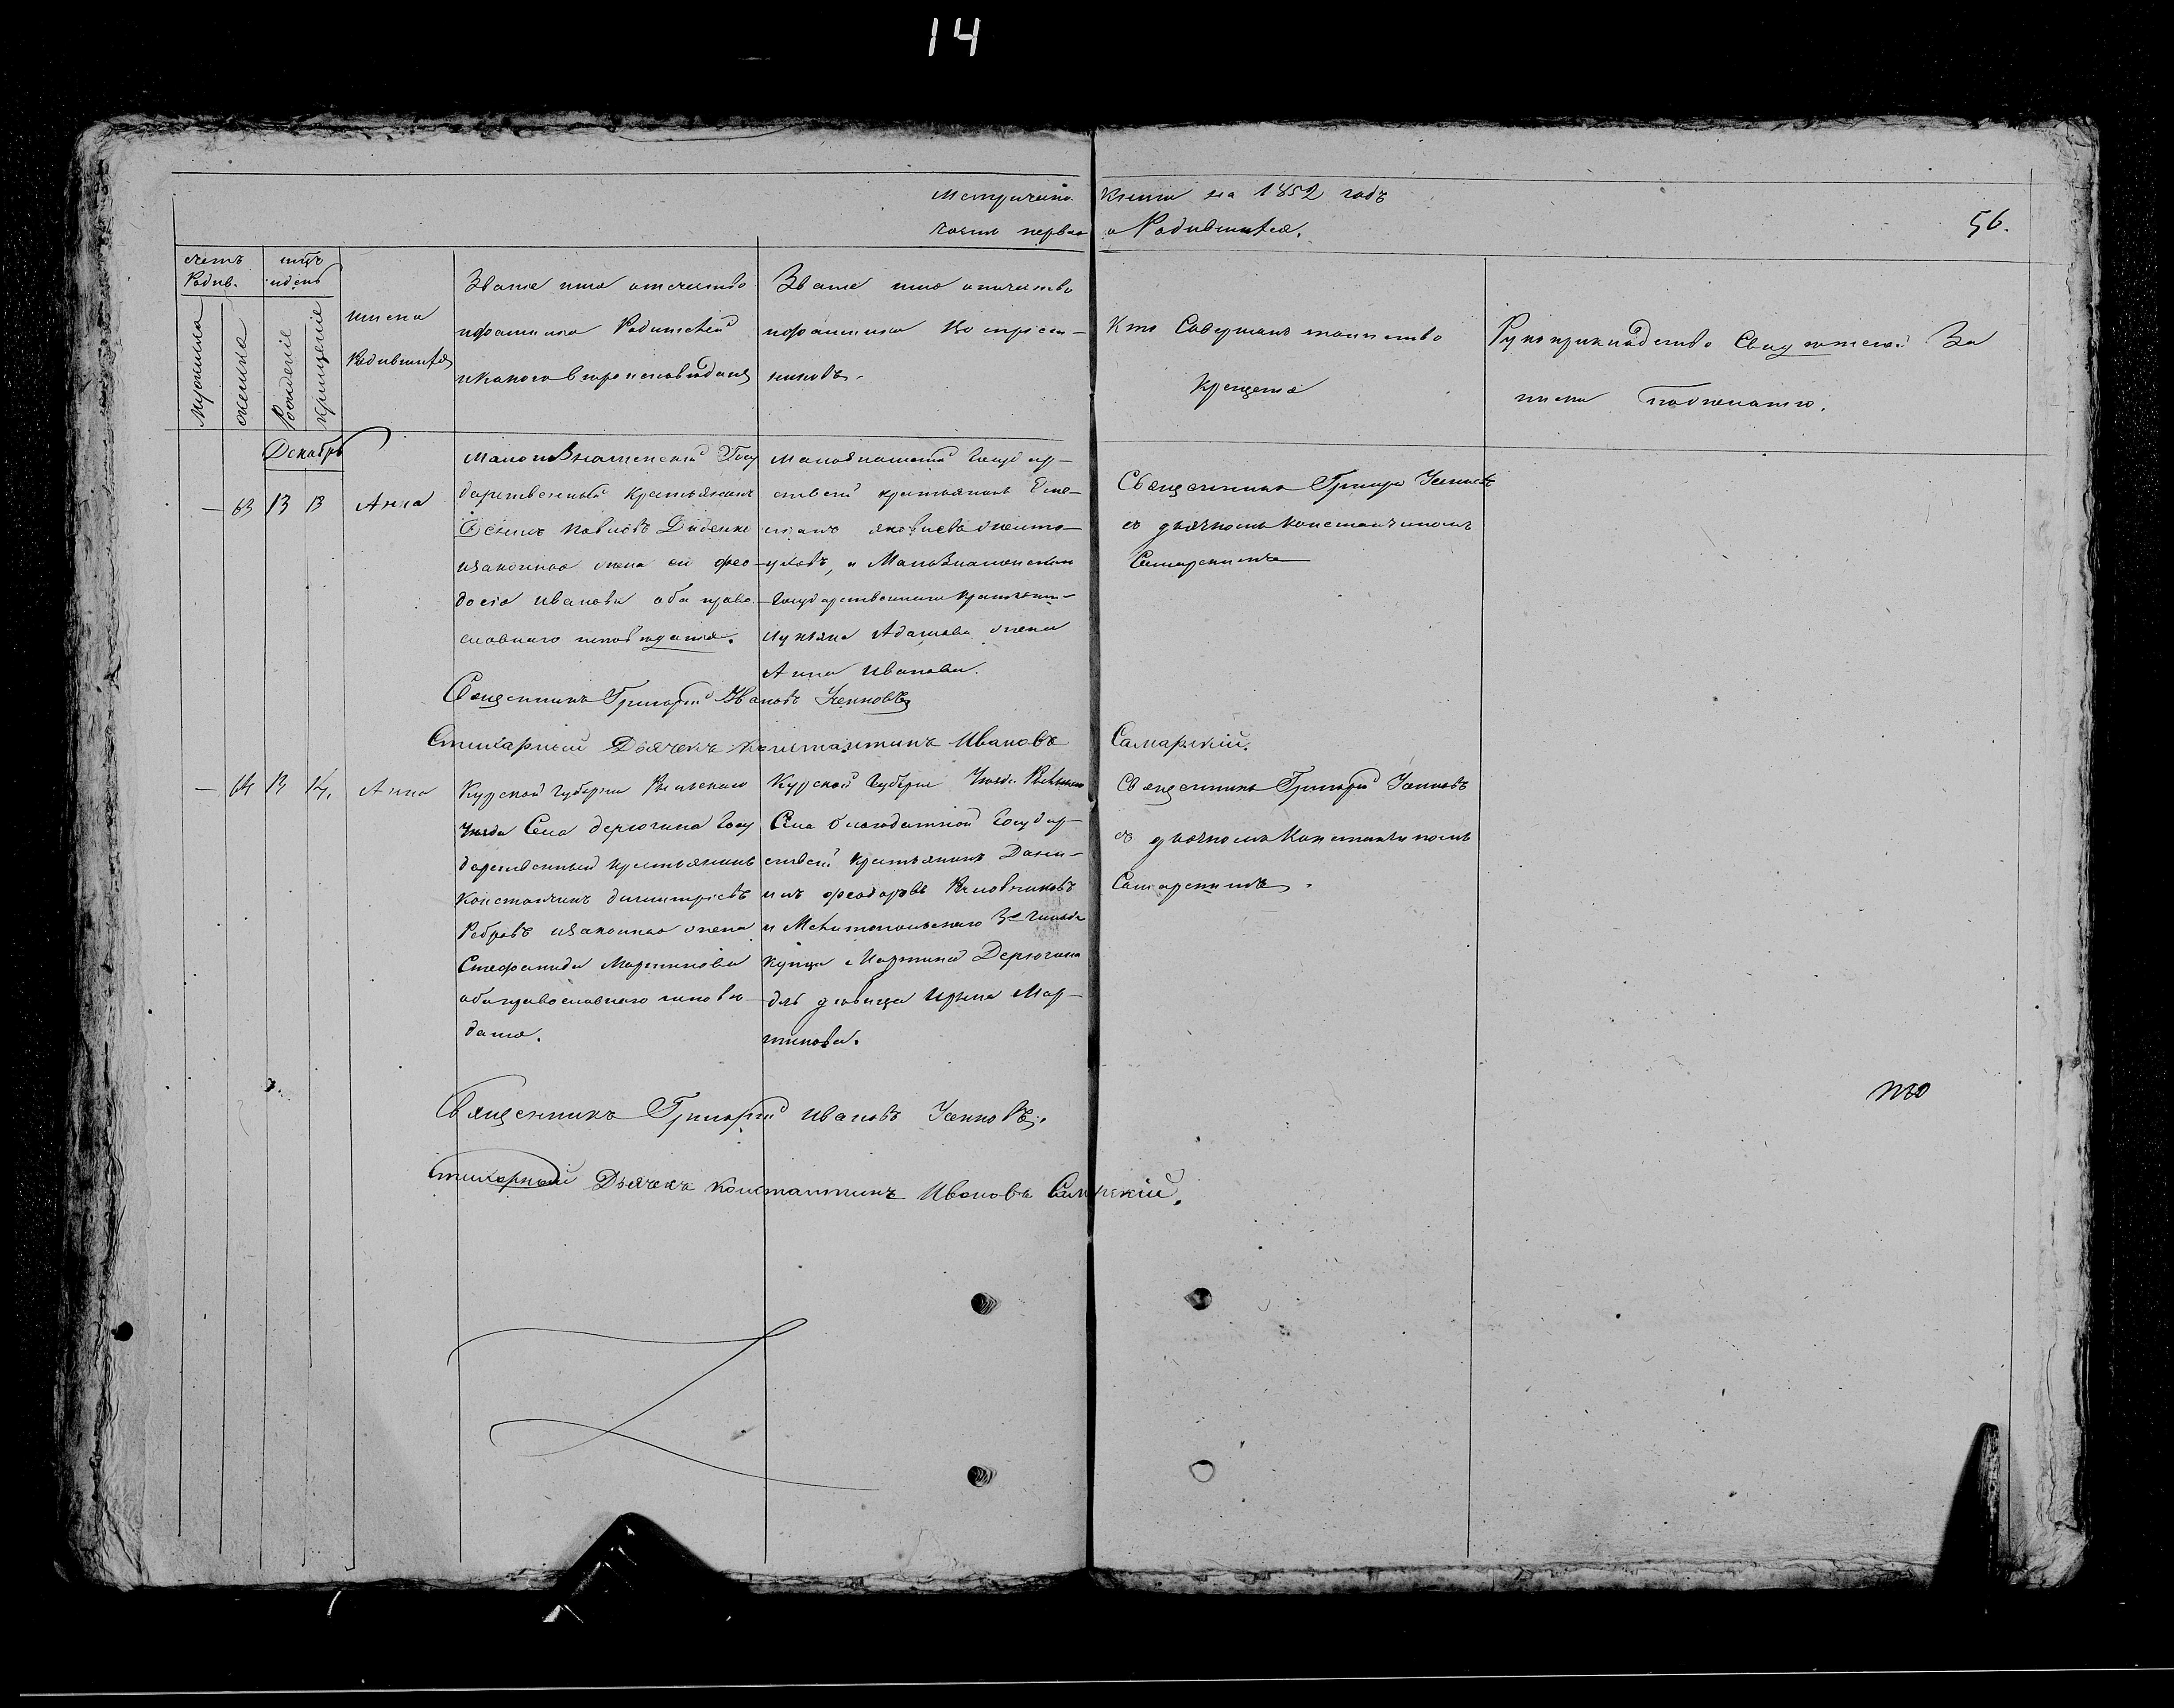 14
Метрической Книги на 1852 годъ
часть первая о Родившихся.
56.
счетъ Родив.
мужеска
женска
мцъ и день
Рожденіе
крищеніе
имена
Родившихся
Званіе имя отечество
и фамилия Родителей
и какого вѣроисповѣданія
Званіе имя отечество
и фамилия Воспріем-
никовъ.
Кто Совершалъ таинство
Крещенія
Рукоприкладство Свидѣтелей За
писи по желанію.
Декабрь
— 63 13 13 Анна
Малознаменскій Госу
дарственный Крестьянинъ
Павловъ Диденко
и законная жена его Фео
досія Иванова оба право-
славнаго исповѣданія.
Малознаменскій Государ-
ствен крестьянинъ Еме-
ліанъ Яковлевъ
и Малознаменскаго
Государственнаго крестьян-
Лукіяна Адамова жена
Анна Иванова.
Священникъ Григорій
съ дьячкомъ Константиномъ
Самарскимъ
Священникъ Григорій Ивановъ
Стихарный Дьячекъ Константинъ Ивановъ Самарскій.
— 64 13 14. Анна
Курской Губерніи Рыльскаго
Уѣзда Села Дерюгина Госу
дарственный крестьянинъ
Константинъ Димитріевъ
Ребровъ и законная жена
Стефанида Мартинова
оба православнаго исповѣ-
данія.
Курской Губерніи Уѣзда Рыльскаго
Села благодатной Государ-
ствен крестьянинъ Дани-
илъ Феодоровъ
и Мелитопольскаго 3й Гильдіи
купца Мартина Дерюгина
дочь дѣвица Ирина Мар-
тинова.
Священникъ Григорій
съ дьячкомъ Константиномъ
Самарскимъ.
Священникъ Григорій Ивановъ
Стихарный Дьячекъ Константинъ Ивановъ Самарскій.